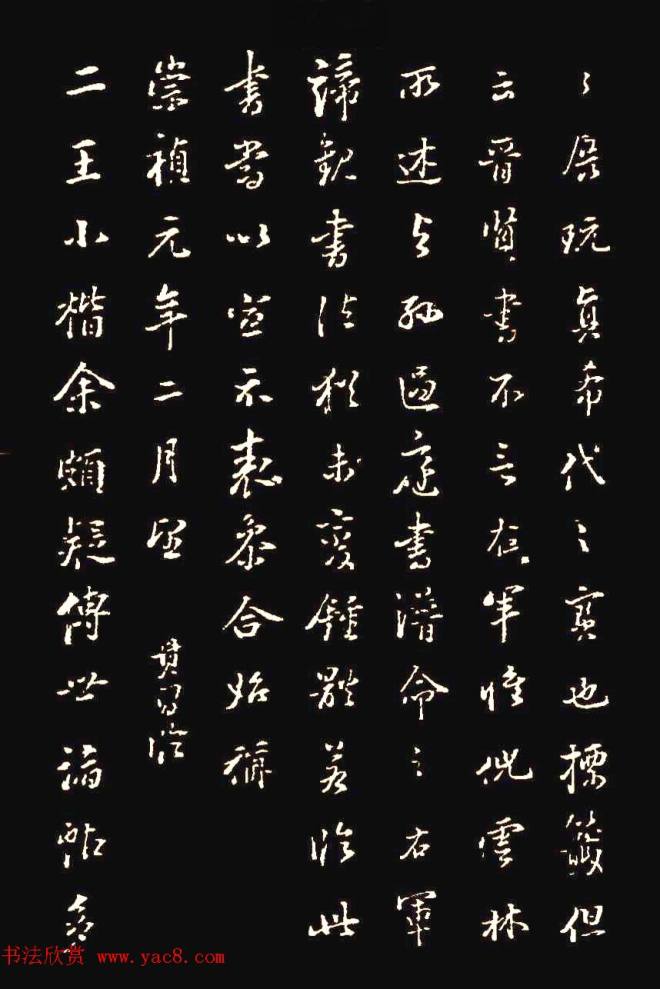 展玩真希代之寶也標籤但
云晉賢書不言右軍惟倪雲林
所述與孫過庭書譜命之右軍
諦觀書法猶未變鍾體若臨此
書當以宣示表參合始稱
崇禎元年二月望
二王小楷余頗疑傳世諸帖
书法欣赏 www.yac8.com